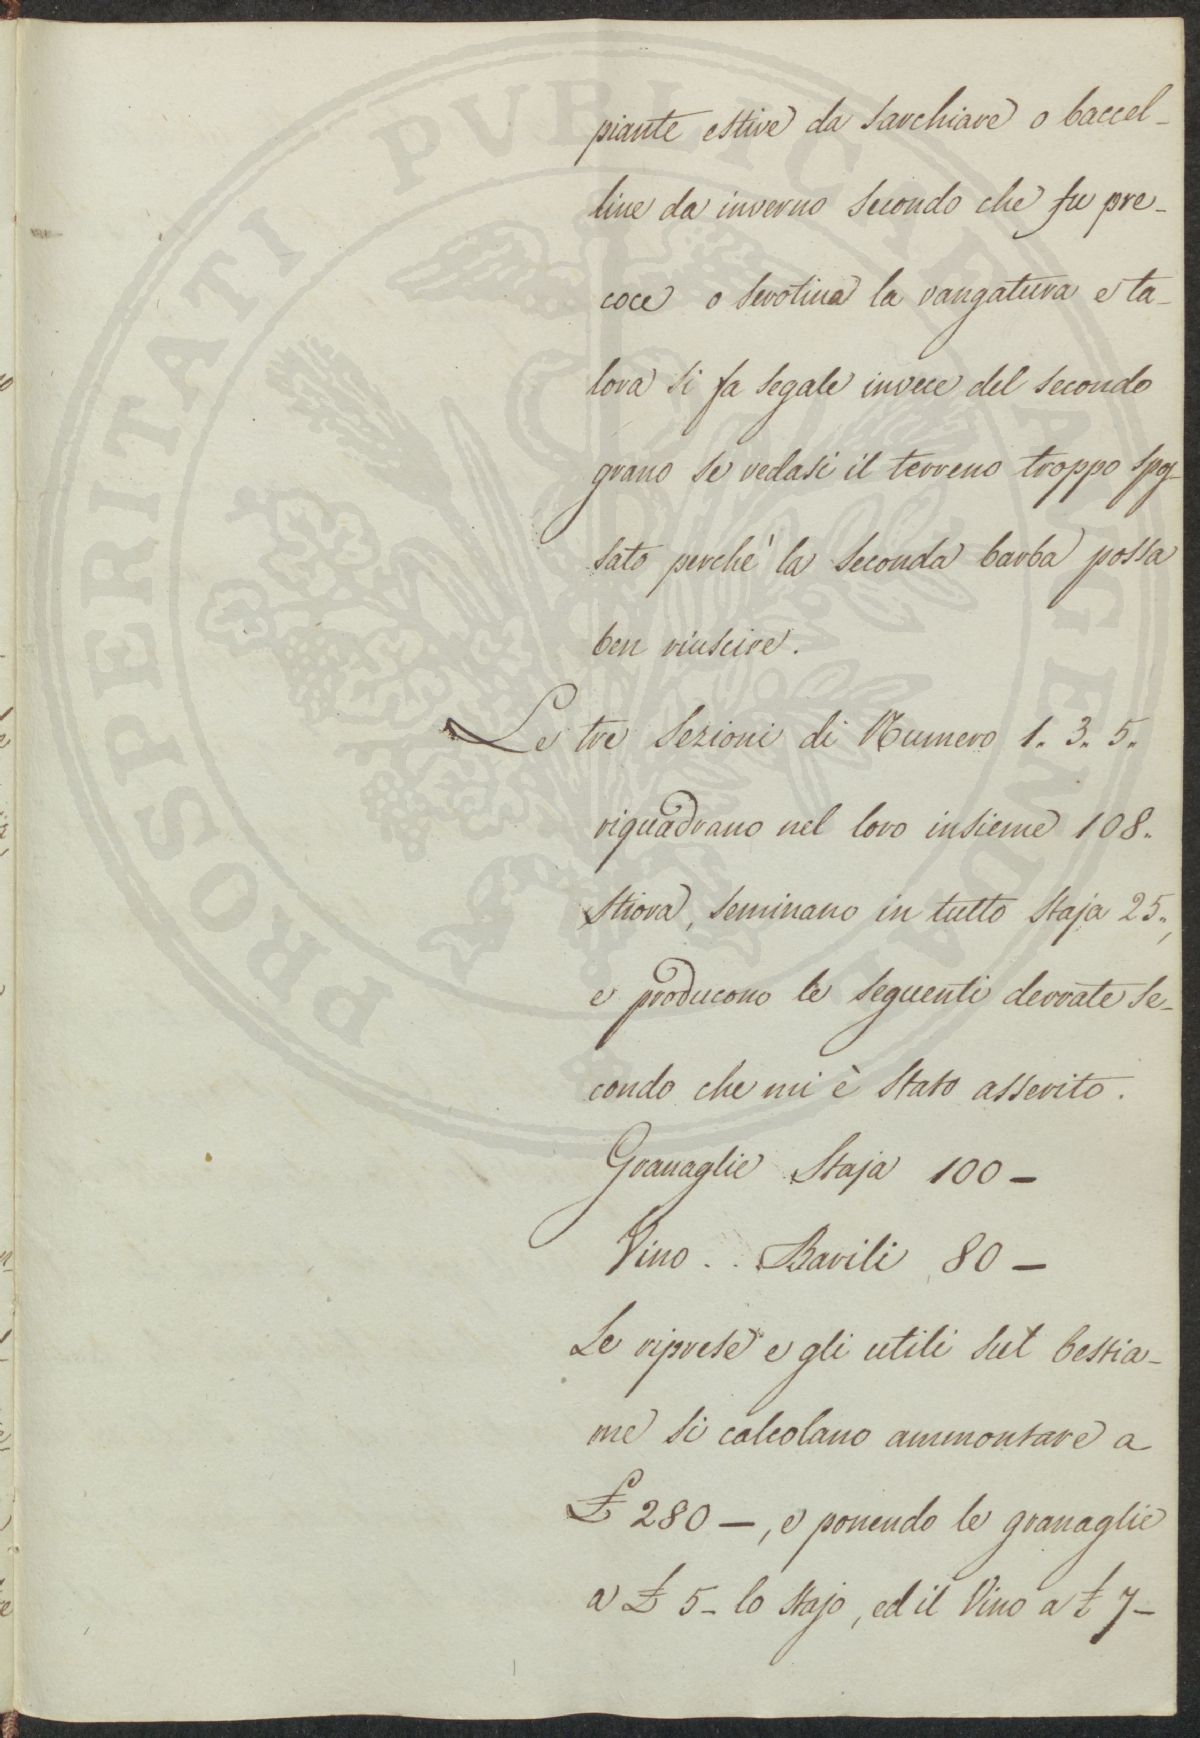 piante estive da sarchiare o baccel-
line da inverno secondo che fu pre-
coce o serotina la vangatura e ta-
lora si fa segale invece del secondo
grano se vedasi il terreno troppo spos-
sato perchè la seconda barba possa
ben riuscire.
Le tre Sezioni di Numero 1. 3. 5.
riquadrano nel loro insieme 108.
Stiora, seminano in tutto Staja 25.,
e producono le seguenti derrate se-
condo che mi è stato asserito.
Granaglie Staja 100 —
Vino . . Barili 80 —
Le riprese e gli utili sul bestia-
me si calcolano ammontare a
£ 280 —, e ponendo le granaglie
a £ 5 - lo stajo, ed il Vino a £ 7 —
PROSPERITATI PVBLICAE AVGENDAE